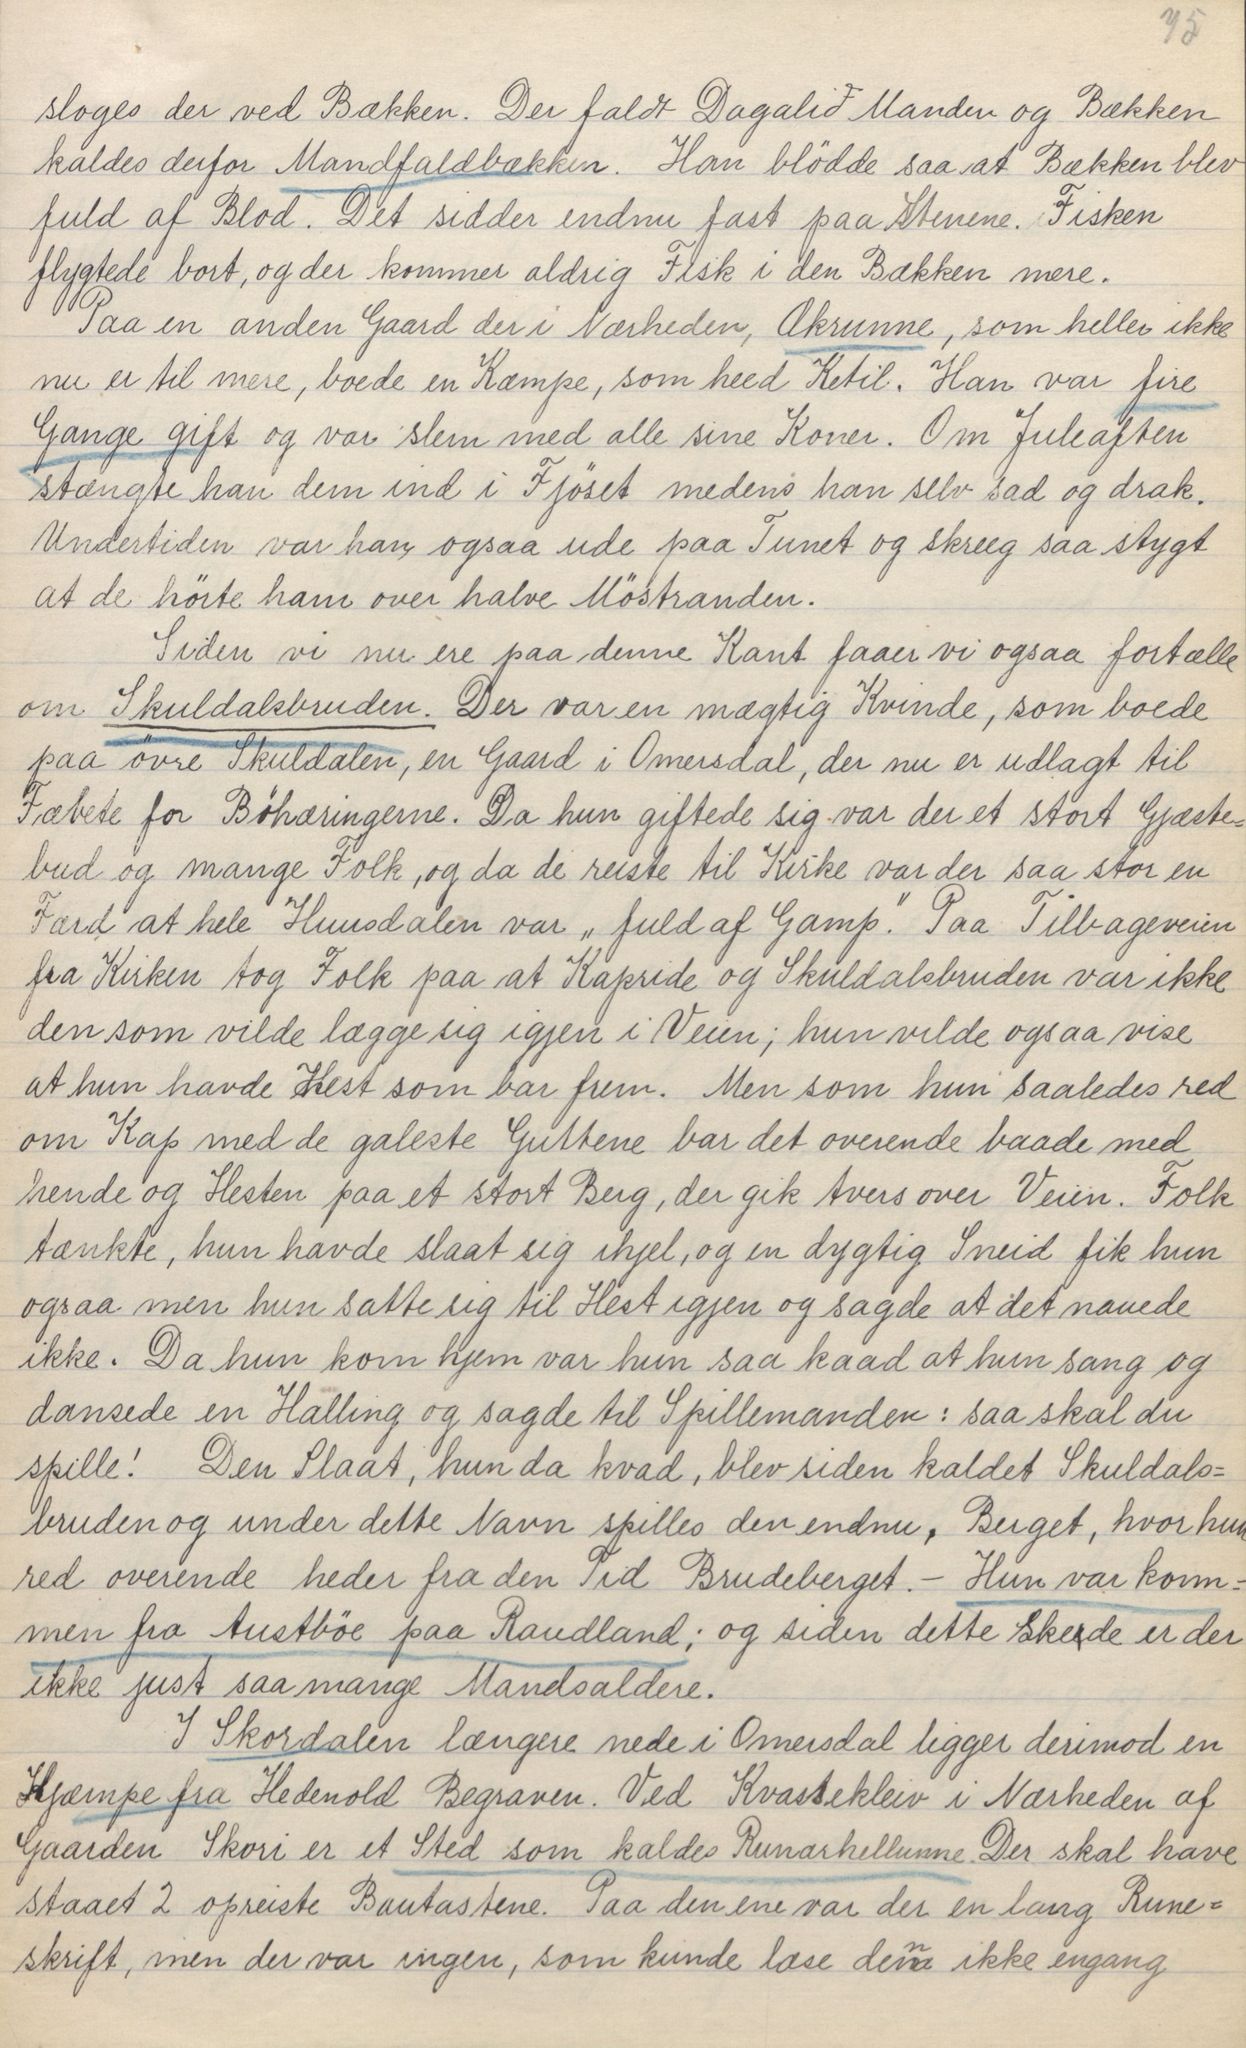 75
sloges der ved Bækken. Der faldt Dagalid Manden og Bækken
kaldes derfor Mandfaldbækken. Han blödde saa at Bækken blev
fuld af Blod. Det sidder endnu fast paa Stenene. Fisken
flygtede bort, og der kommer aldrig Fisk i den Bækken mere.
Paa en anden Gaard der i Nærheden, Akrunne, som heller ikke
nu er til mere, boede en Kæmpe, som heed Ketil. Han var fire
Gange gift og var slem med alle sine Koner. Om Juleaften
stængte han dem ind i Fjöset medens han selv sad og drak.
Undertiden var han ogsaa ude paa Tunet og skreeg saa stygt
at de hörte ham over halve Möstranden.
Siden vi nu ere paa denne Kant faaer vi ogsaa fortælle
om Skuldalsbruden. Der var en mægtig Kvinde, som boede
paa övre Skuldalen, en Gaard i Omersdal, der nu er udlagt til
Fæbete for Böhæringerne. Da hun giftede sig var der et stort Gjæste=
bud og mange Folk, og da de reiste til Kirke var der saa stor en
Færd at hele Huusdalen var „fuld af Gamp." Paa Tilbageveien
fra Kirken tog Folk paa at Kapride og Skuldalsbruden var ikke
den som vilde lægge sig igjen i Veien; hun vilde ogsaa vise
at hun havde Hest som bar frem. Men som hun saaledes red
om Kap med de galeste Guttene bar det overende baade med
hende og Hesten paa et stort Berg, der gik tvers over Veien. Folk
tænkte, hun havde slaat sig ihjel, og en dygtig Sneid fik hun
ogsaa men hun satte sig til Hest igjen og sagde at det nauede
ikke. Da hun kom hjem var hun saa kaad at hun sang og
dansede en Halling og sagde til Spillemanden: saa skal du
spille! Den Slaat, hun da kvad, blev siden kaldet Skuldals=
bruden og under dette Navn spilles den endnu, Berget, hvor hun
red overende heder fra den Tid Brudeberget. – Hun var kom=
men fra Austböe paa Raudland; og siden dette Skede er der
ikke just saa mange Mandsaldere.
I Skordalen længere nede i Omersdal ligger derimod en
Kjæmpe fra Hedenold Begraven. Ved Kvastekleiv i Nærheden af
Gaarden Skori er et Sted som kaldes Runarhellunne. Der skal have
staaet 2 opreiste Bautastene. Paa den ene var der en lang Rune=
skrift, men der var ingen, som kunde læse denn ikke engang